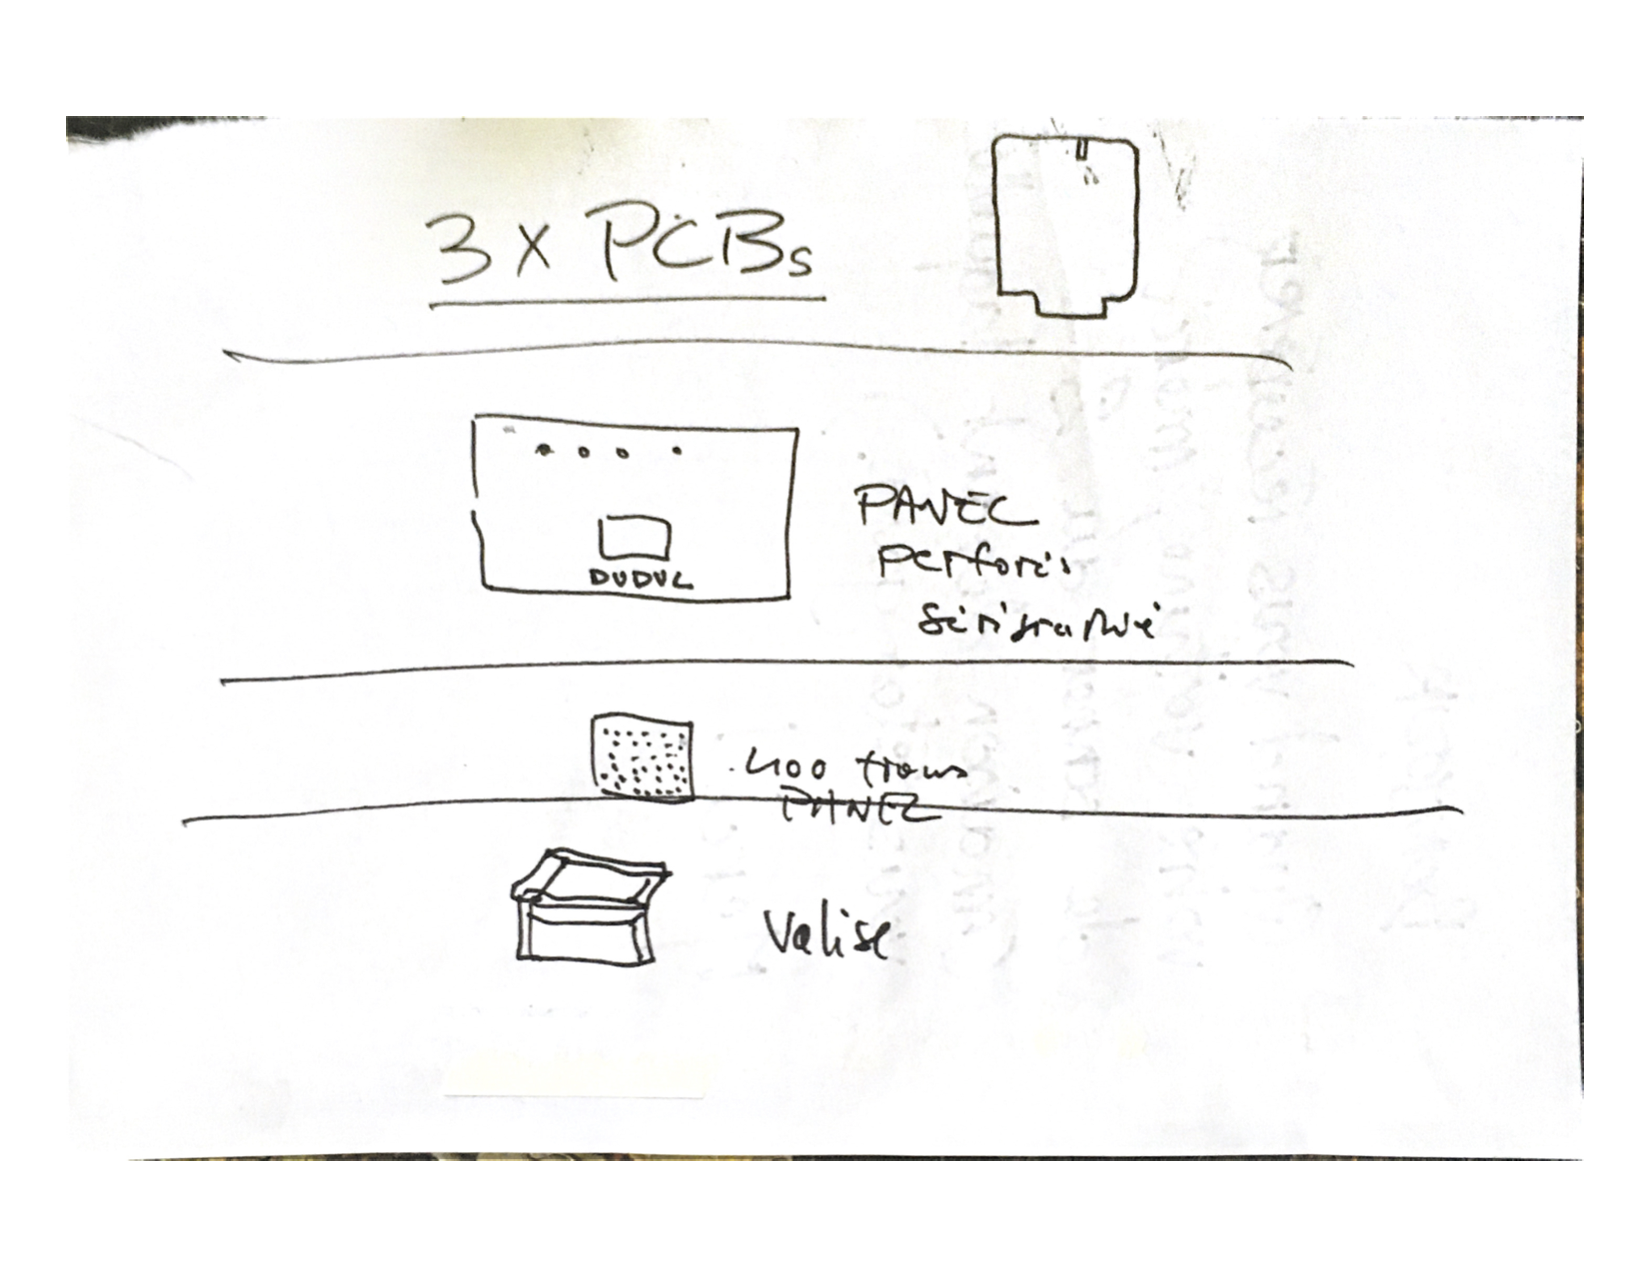 3 x PCBs
DUDUL
PANEL
Perforés
Sérigraphié
400 trous
PANEL
Valise